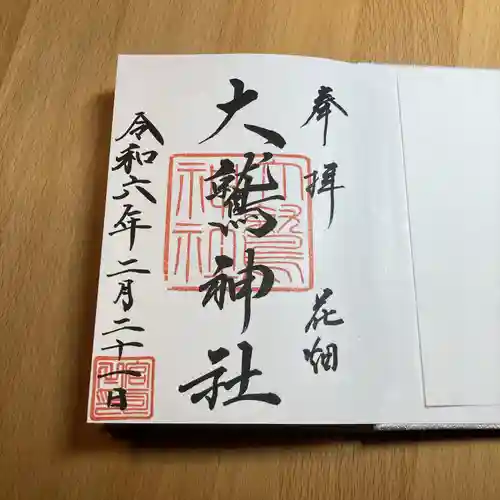 奉拝 花畑
大鷲神社
令和六年二月二十一日